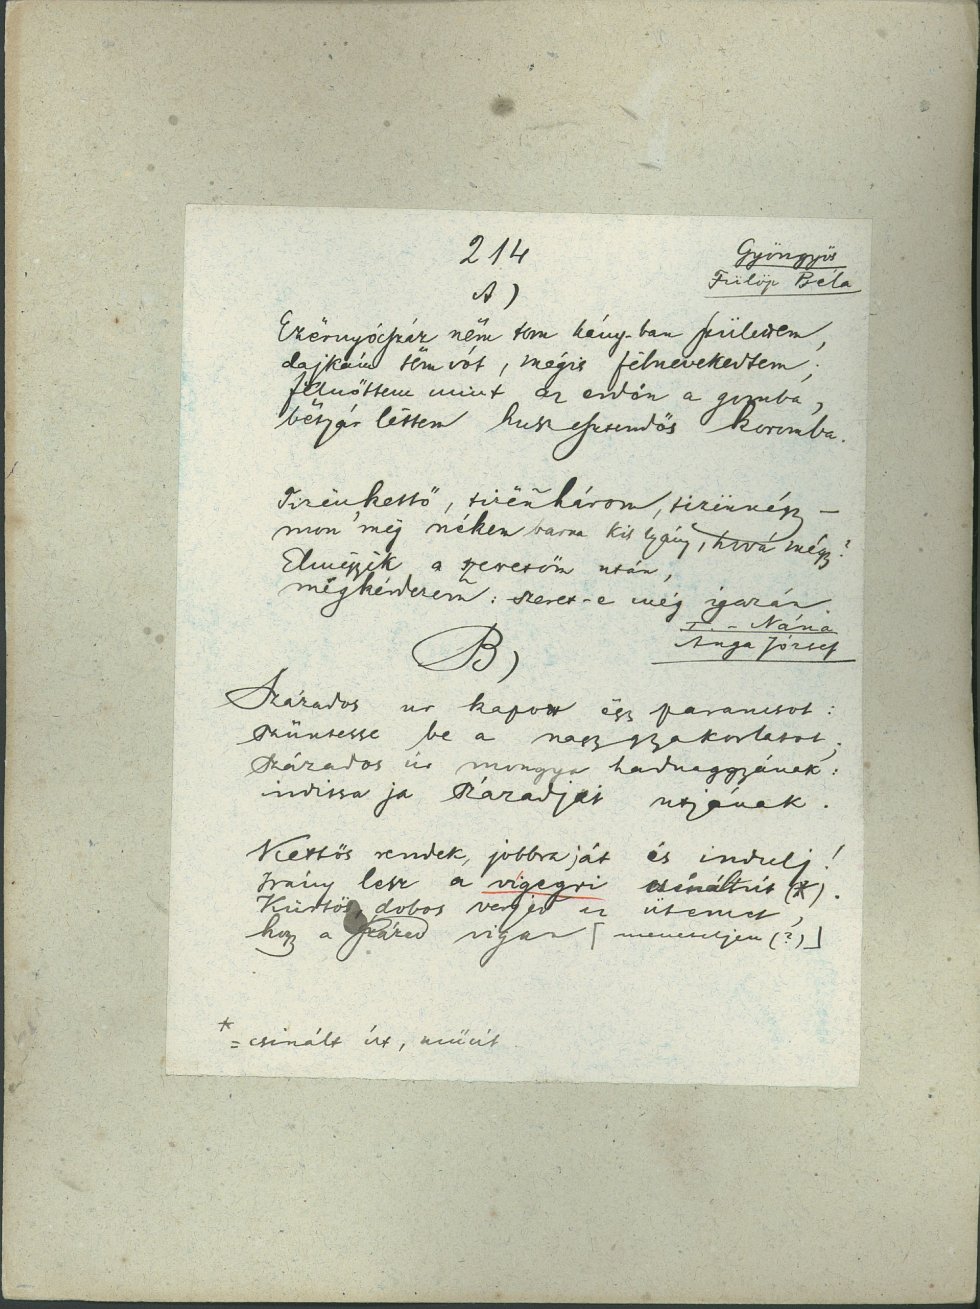 214
Gyöngyös
Fülöp Béla
A)
Ezërnyócszáz nëm tom hány-ban születtem,
dajkám sëm vót, mégis fëlnevekedtem;
fëlnőttem mint az erdőn a gomba,
bëtyár lëttem husz esztendős koromba.
Tizënkettő, tizënhárom, tizënnégy –
mon' még néken barna kis lyány, hová mégy?
Elmëgyëk a szeretőm után,
mëgkérdezem: szeret-e még igazán.
T. – Nána
Anga József
B)
Százados ur kapott ëgy parancsot:
szüntesse be a nagy gyakorlatot;
Százados úr mongya hadnaggyának:
indissa ja századját utjának.
Kettős rendek, jobbra ját és indulj!
Irány lesz a vígegri csináltút (*).
Kürtös, dobos verjed az ütemet,
hogy a század vigan [meneteljen (?)]
* = csinált út, műút